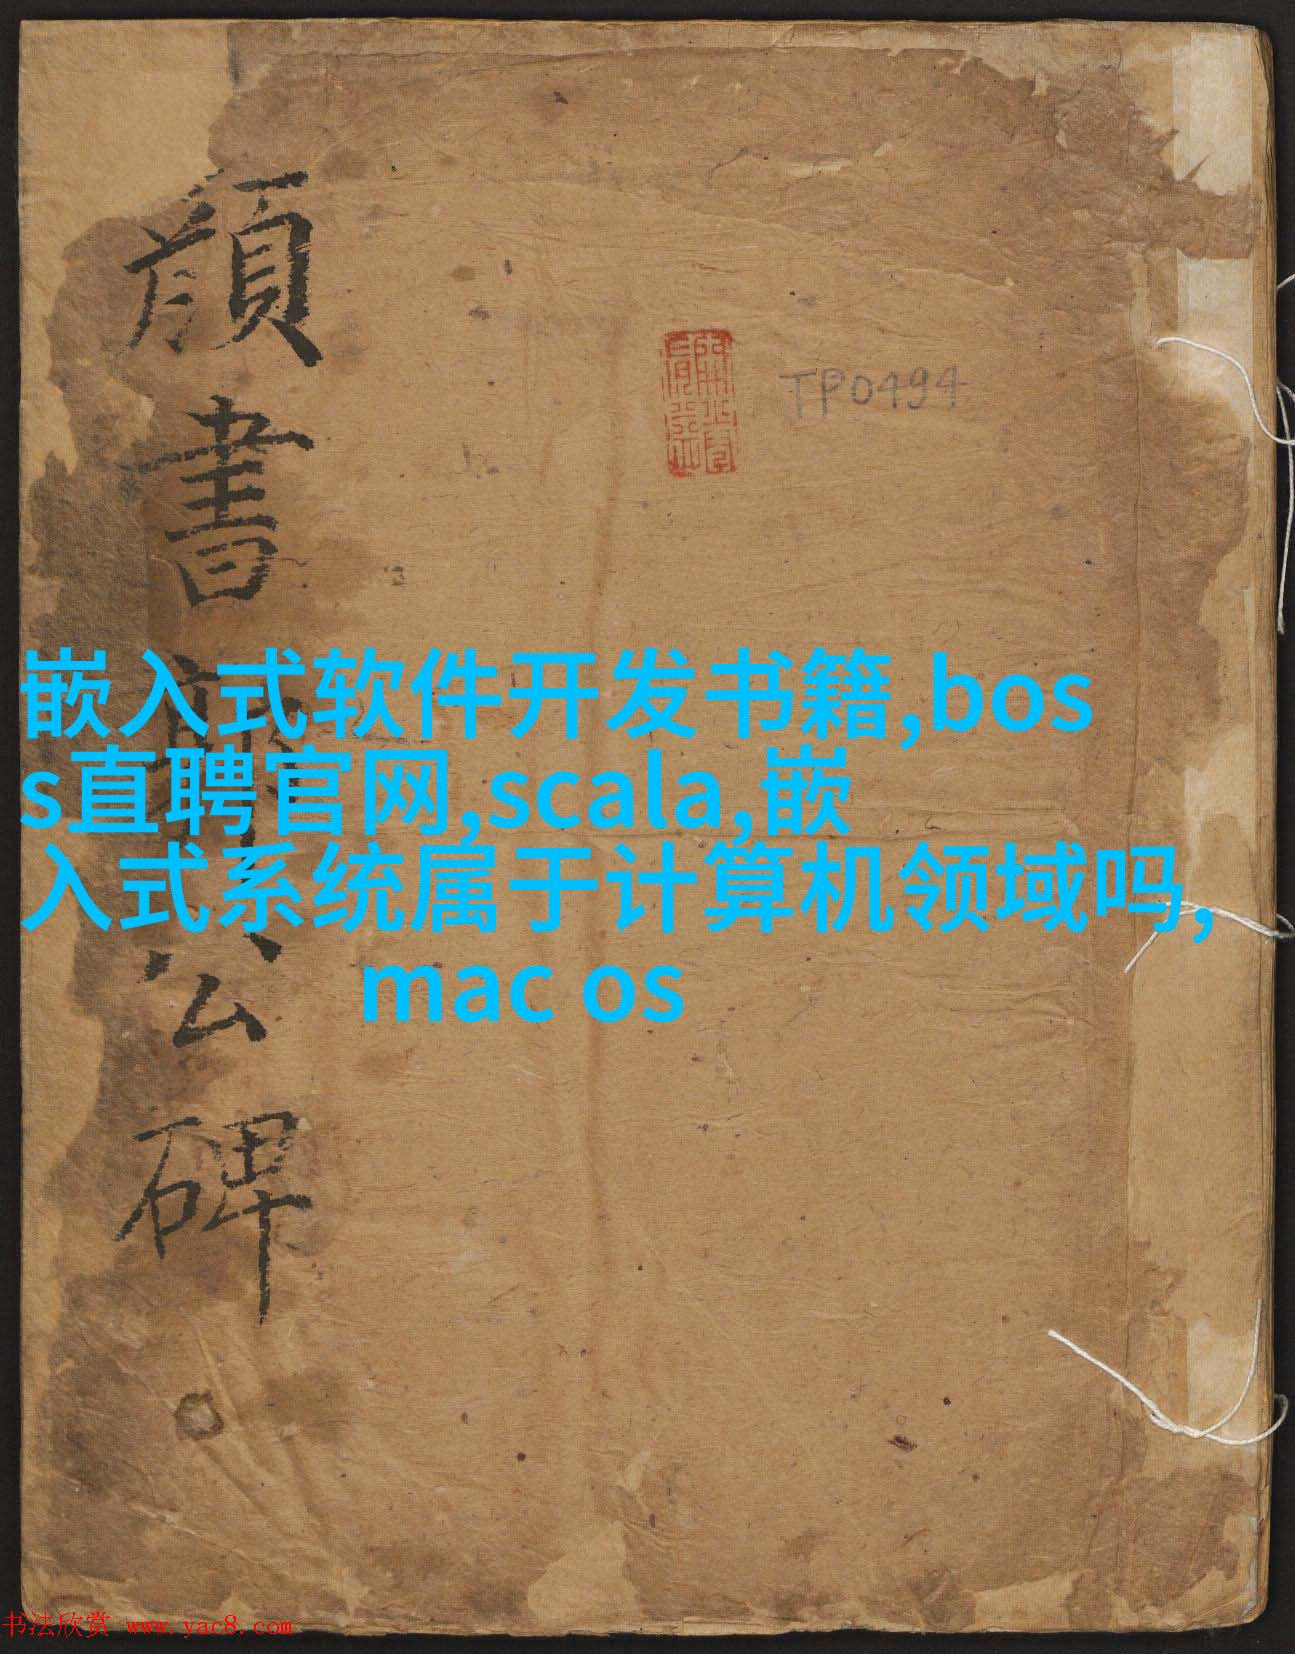 顔書郭公碑
TP0494
嵌入式软件开发书籍,bos
s直聘官网,scala,嵌
入式系统属于计算机领域吗,
mac os
书法欣赏 www.yac8.com